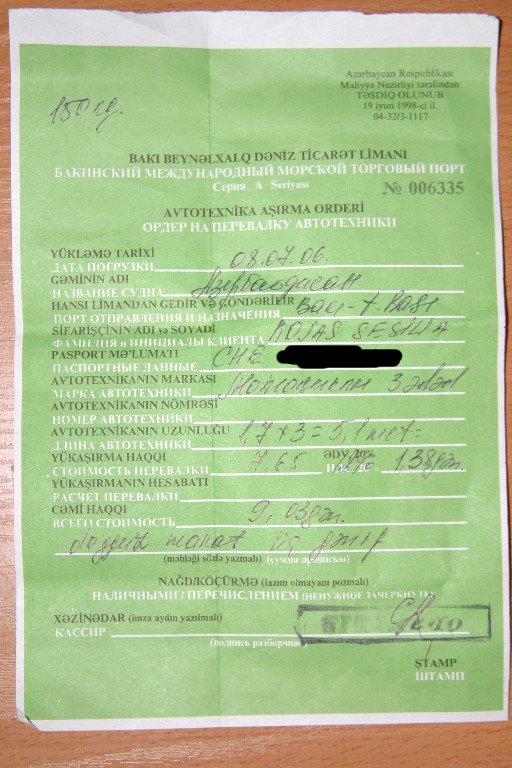 Azərbaycan Respublikası
Maliyyə Nazirliyi tərəfindən
TƏSDİQ OLUNUB
19 iyun 1998-ci il.
04-32/3-1117
BAKI BEYNƏLXALQ DƏNİZ TİCARƏT LİMANI
БАКИНСКИЙ МЕЖДУНАРОДНЫЙ МОРСКОЙ ТОРГОВЫЙ ПОРТ
Серия A Seriyası
№ 006335
AVTOTEXNİKA AŞIRMA ORDERİ
ОРДЕР НА ПЕРЕВАЛКУ АВТОТЕХНИКИ
YÜKLƏMƏ TARİXİ
ДАТА ПОГРУЗКИ 08.07.06.
GƏMİNİN ADI
НАЗВАНИЕ СУДНА Азербайджан
HANSI LİMANDAN GEDİR VƏ GÖNDƏRİLİR
ПОРТ ОТПРАВЛЕНИЯ И НАЗНАЧЕНИЯ
SİFARİŞÇİNİN ADI və SOYADI
ФАМИЛИЯ и ИНИЦИАЛЫ КЛИЕНТА ROJAS SESILIA
PASPORT MƏ'LUMATI
ПАСПОРТНЫЕ ДАННЫЕ CHE
AVTOTEXNİKANIN MARKASI
МАРКА АВТОТЕХНИКИ Мотоцикл 3 ədəd
AVTOTEXNİKANIN NÖMRƏSİ
НОМЕР АВТОТЕХНИКИ
AVTOTEXNİKANIN UZUNLUĞU
ДЛИНА АВТОТЕХНИКИ 1,7 × 3 = 5,1 met-
YÜKAŞIRMA HAQQI
СТОИМОСТЬ ПЕРЕВАЛКИ 7,65
ƏDV 20%
YÜKAŞIRMANIN HESABATI
РАСЧЕТ ПЕРЕВАЛКИ
CƏMİ HAQQI
ВСЕГО СТОИМОСТЬ 9,03
manat üç
(məbləği sözlə yazmalı) (сумма прописью)
NAĞD/KÖÇÜRMƏ (lazım olmayanı pozmalı)
НАЛИЧНЫМИ / ПЕРЕЧИСЛЕНИЕМ (НЕНУЖНОЕ ЗАЧЕРКНУТЬ)
XƏZİNƏDAR (imza aydın yazılmalı)
КАССИР
(подпись разборчиво)
ŞTAMP
ШТАМП